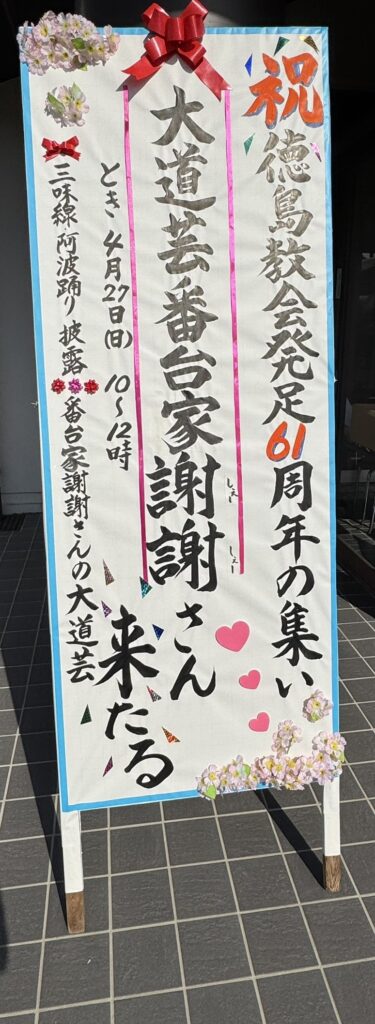 祝徳島教会発足61周年の集い
大道芸番台家謝謝さん
しぇー しぇー
来たる
とき 4月27日(日) 10~12時
三味線阿波踊り披露 番台家謝謝さんの大道芸